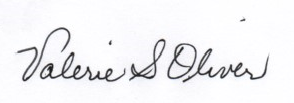 Valerie S Oliver